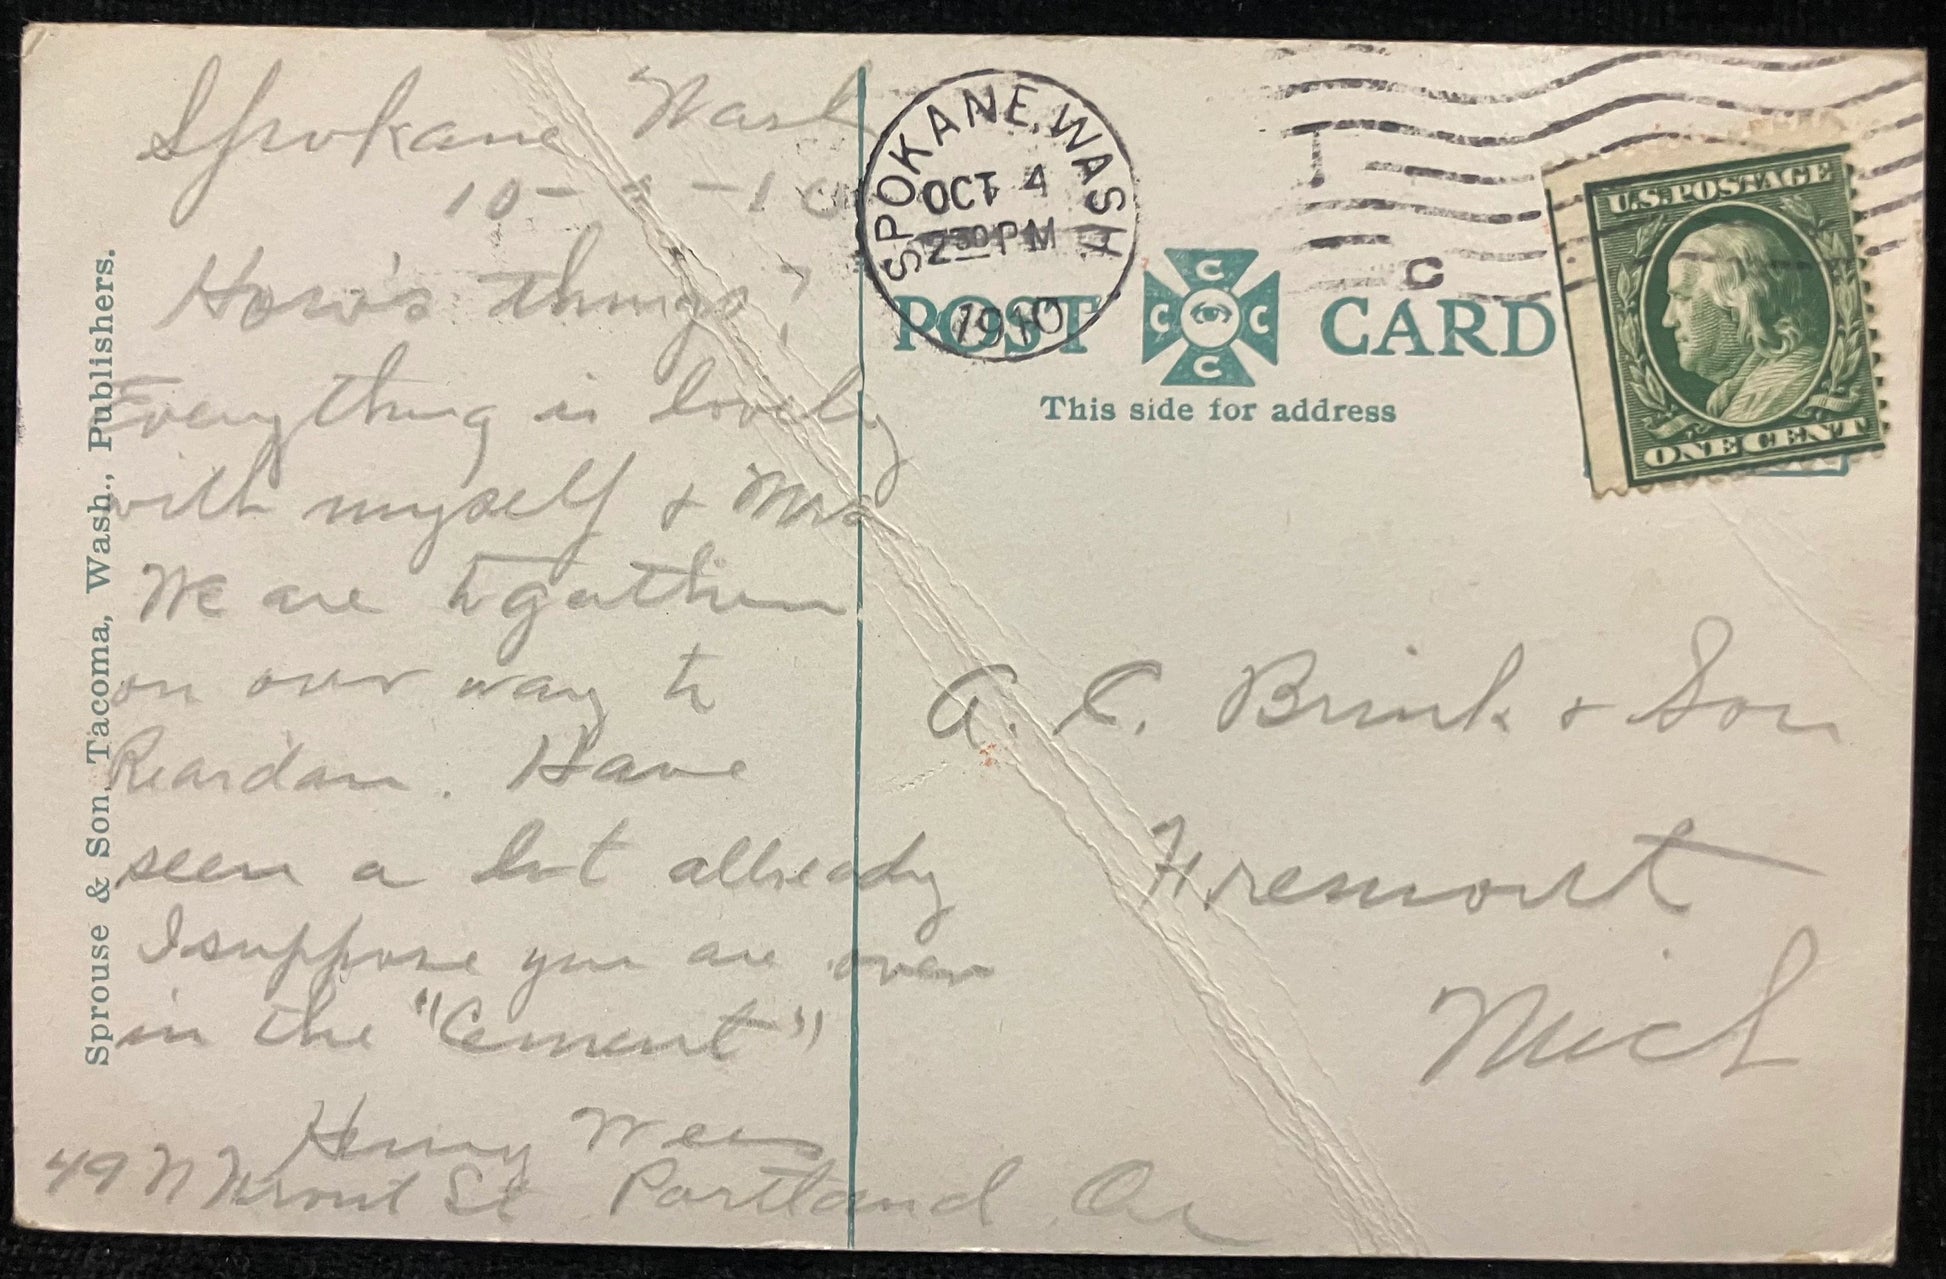 Spokane Wash
10- -10
How's things?
Everything is lovely
with myself & Mrs
We are together
on our way to
Reardan. Have
seen a lot allready
I suppose you are over
in the "Cement"
Henry
49 N Front St Portland, Or
Sprouse & Son, Tacoma, Wash., Publishers.
SPOKANE, WASH
OCT 4
2 30 PM
1910
T
C
U.S. POSTAGE
ONE CENT
POST CARD
C
C C
C
This side for address
A. C. Brink & Son
Fremont
Mich